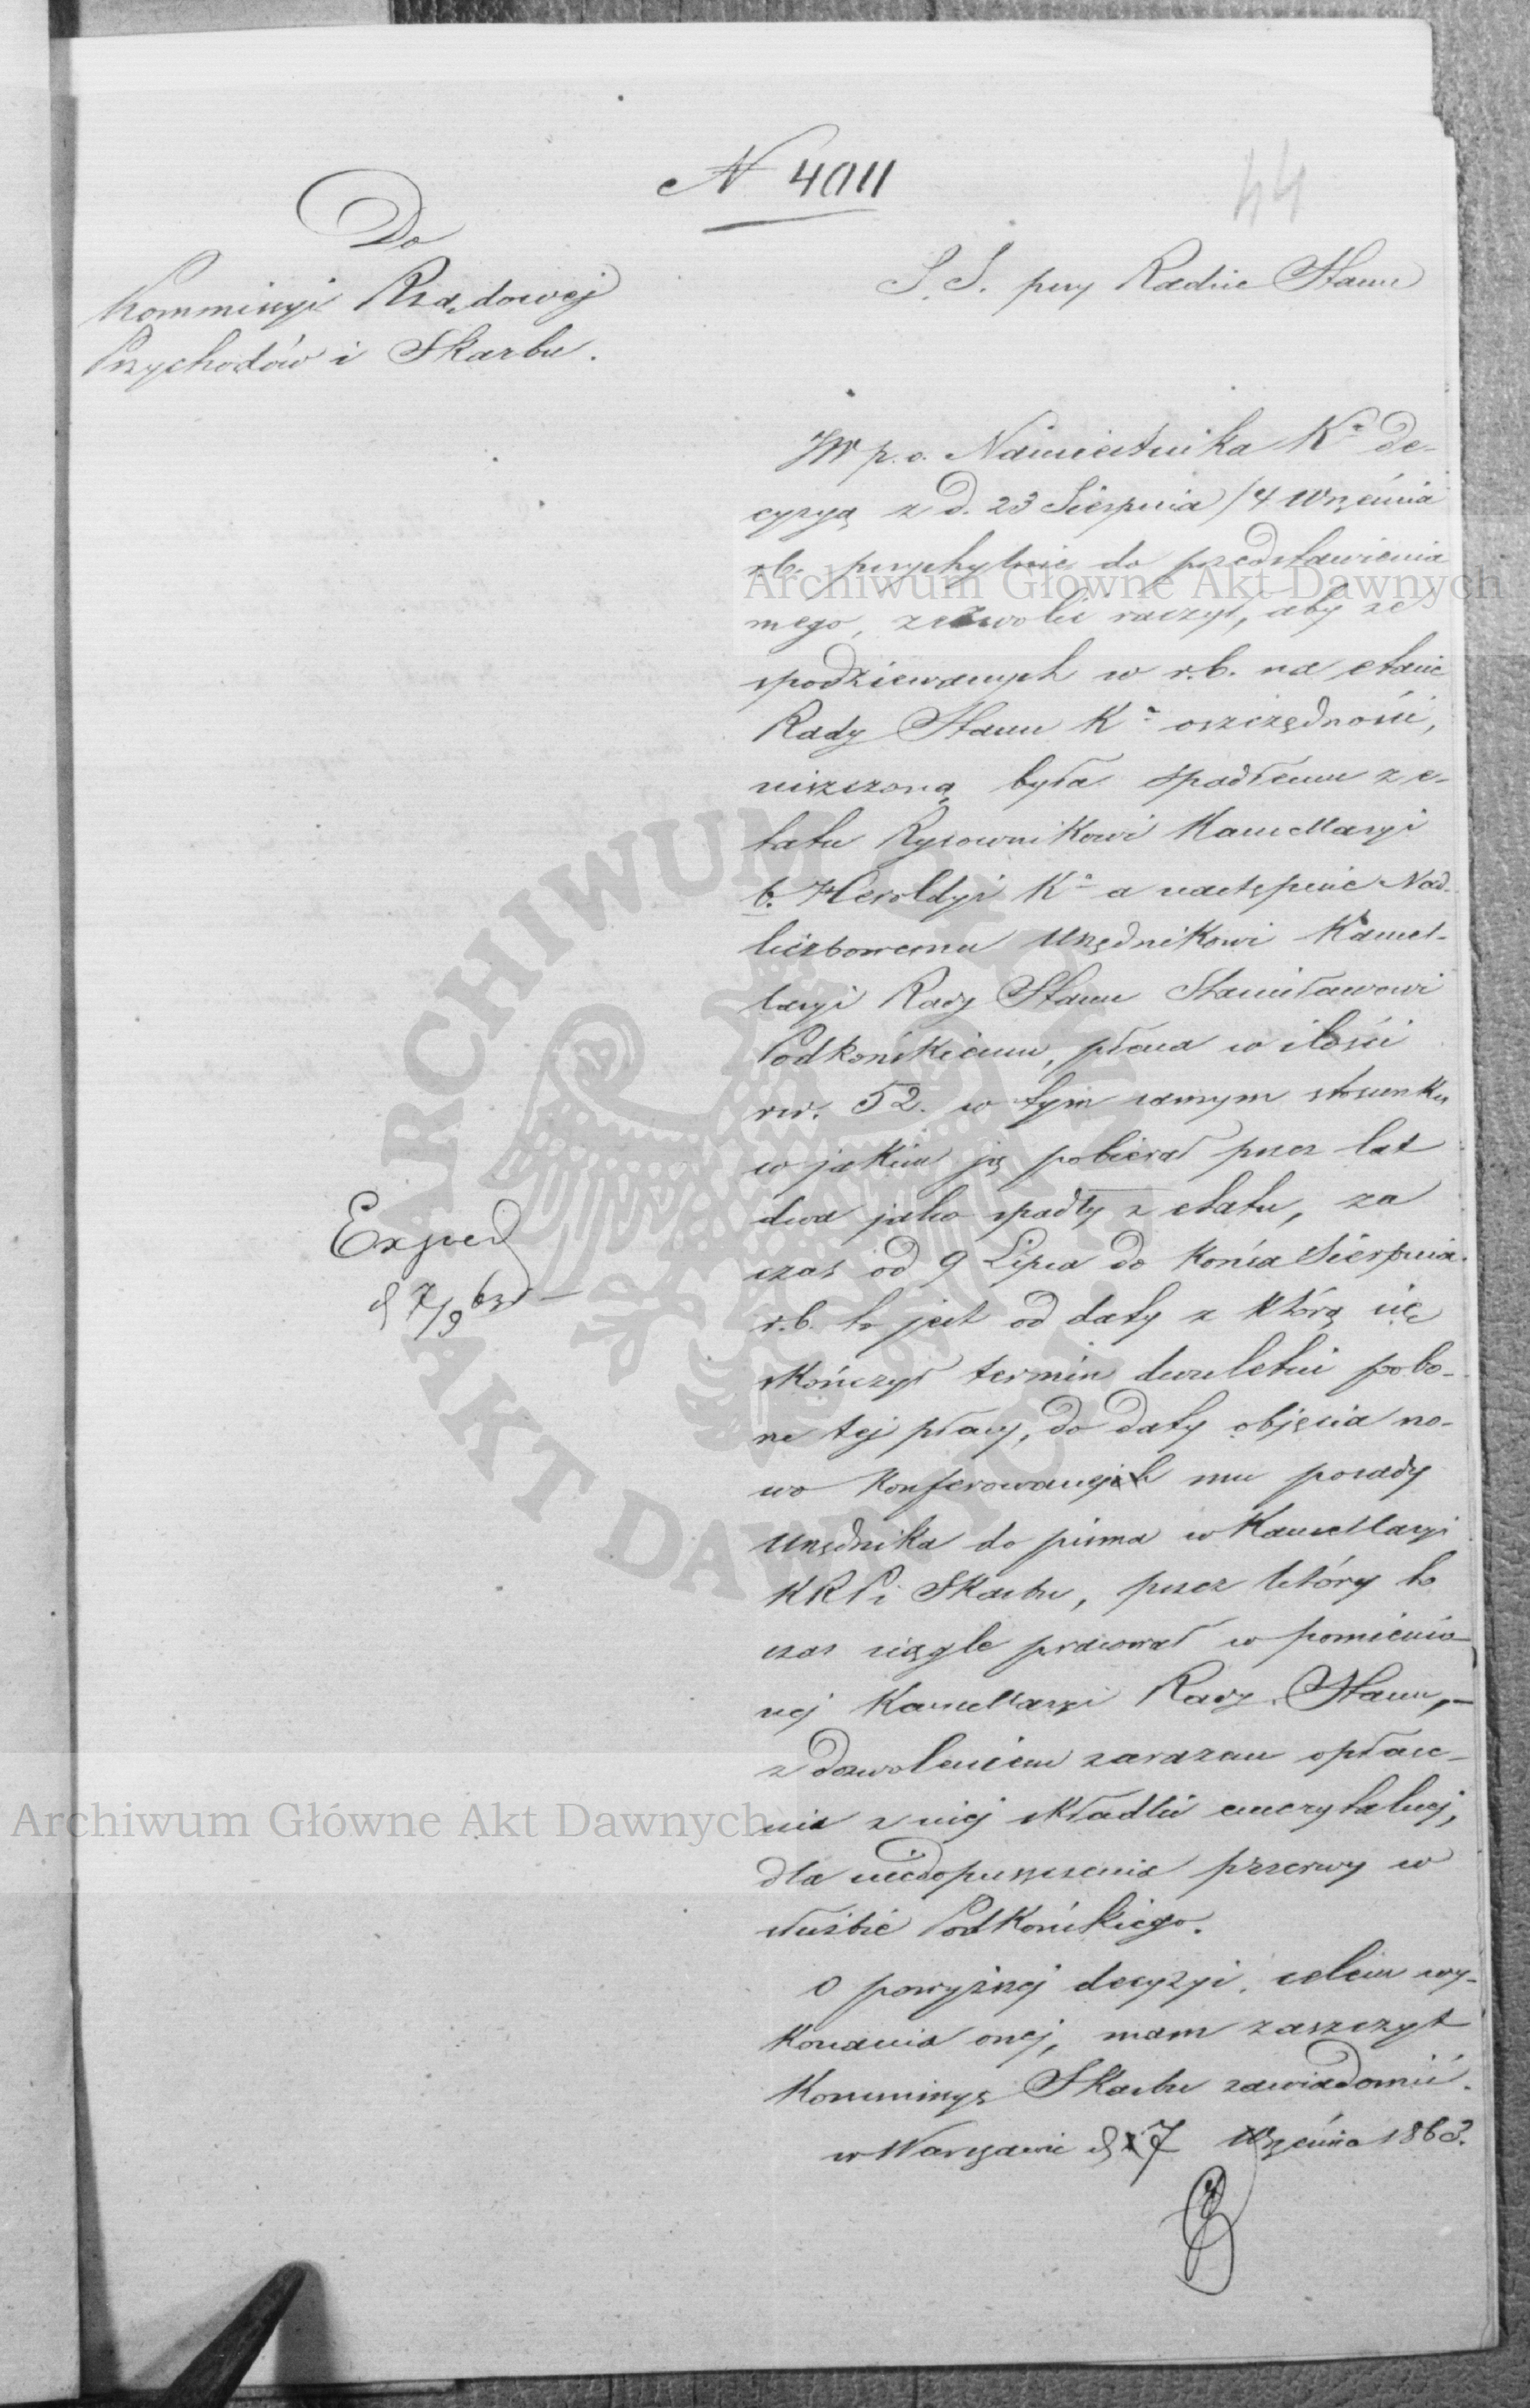 N 4011
44
Do
Kommissyi Rządowej
Przychodów i Skarbu.
S. S. przy Radzie Stanu
JW p. o. Namiestnika K<sup>a</sup> de-
cyzyą z d. 23 Sierpnia / 4 Września
rb. przychylnie do przedstawienia
mego, zezwolić raczył, aby ze
spodziewanych w r.b. na etacie
Rady Stanu K<sup>a</sup> oszczędności,
uiszczoną była spadłemu z e-
tatu Rysownikowi Kancellaryi
b. Heroldyi K<sup>a</sup> a następnie Nad-
liczbowemu Urzędnikowi Kancel-
laryi Rady Stanu Stanisławowi
Podkońskiemu, płaca w ilości
rsr. 52. w tym samym stosunku
w jakim ją pobierał przez lat
dwa jako spadły z etatu, za
czas od 9 Lipca do końca Sierpnia
r.b. to jest od daty z którą się
skończył termin dwuletni pobo-
ru tej płacy, do daty objęcia no-
wo konferowanej mu posady
Urzędnika do pisma w Kancellaryi
KRP i Skarbu, przez który to
czas ciągle pracował w pomienio-
nej Kancellaryi Rady Stanu,
z dozwoleniem zarazem opłace-
nia z niej składki emerytalnej,
dla niedopuszczenia przerwy w
służbie Podkońskiego.
O powyższej decyzyi, celem wy-
konania onej, mam zaszczyt
Kommissyę Skarbu zawiadomić.
w Warszawie d 7 Września 1863.
Exped
d 7/9 63
Archiwum Główne Akt Dawnych
ARCHIWUM GŁÓWNE AKT DAWNYCH
Archiwum Główne Akt Dawnych